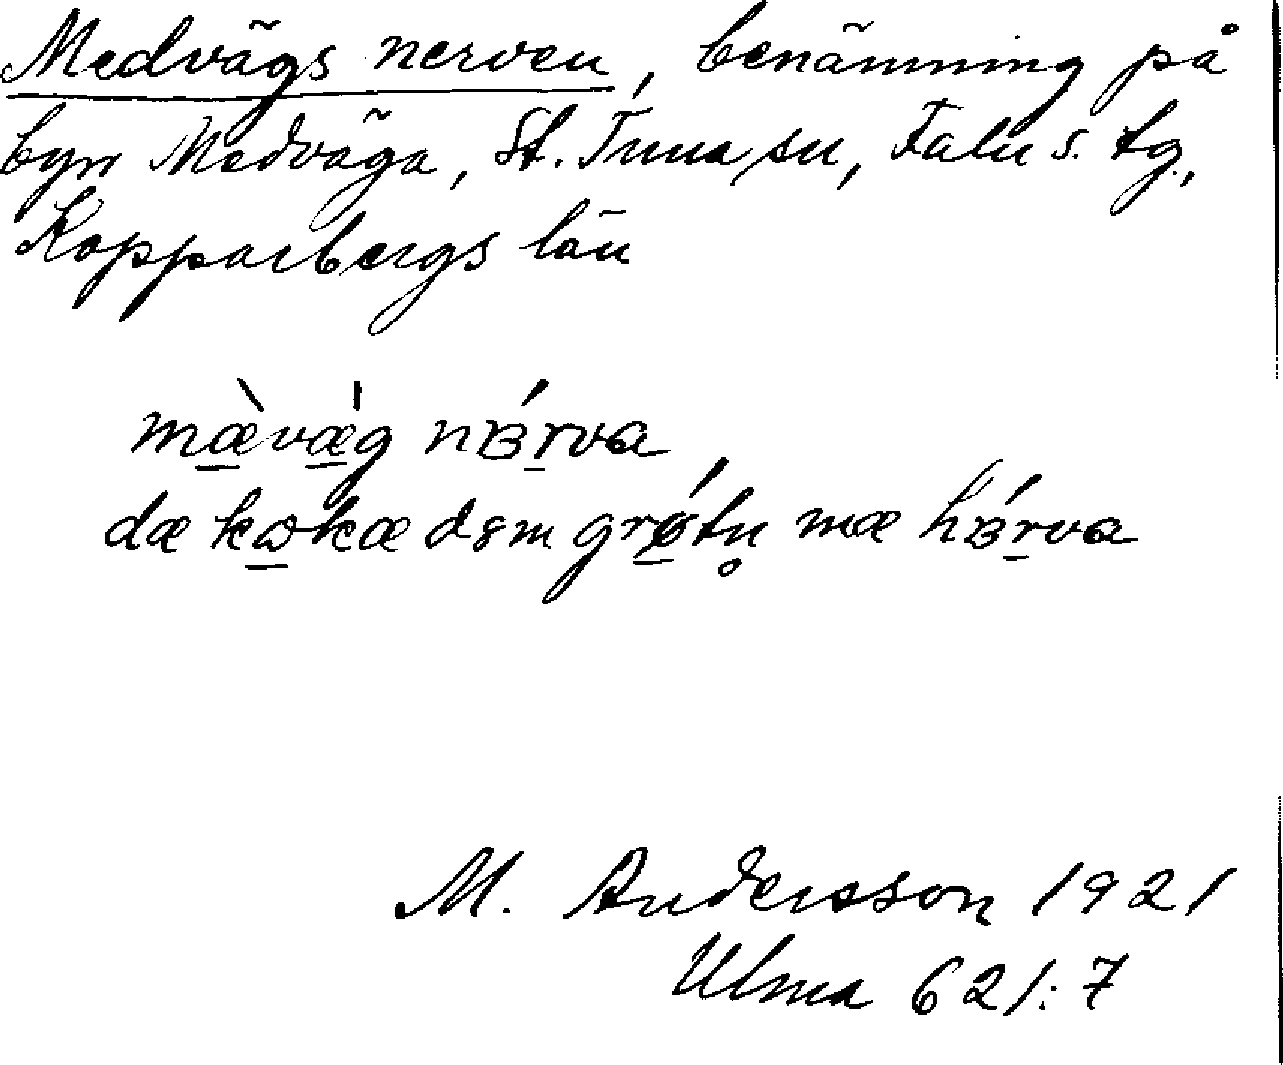 Medvägs nerven, benämning på
byn Medväga, St. Tuna sn, Falu s. tg,
Kopparbergs län
mæ̱̀væ̱̍g nʙ́ṟva
dæ kɷ̱kæ dɛm grǿ̱tn̥ mæ hʙ́ṟva
M. Andersson 1921
Ulma 621:7